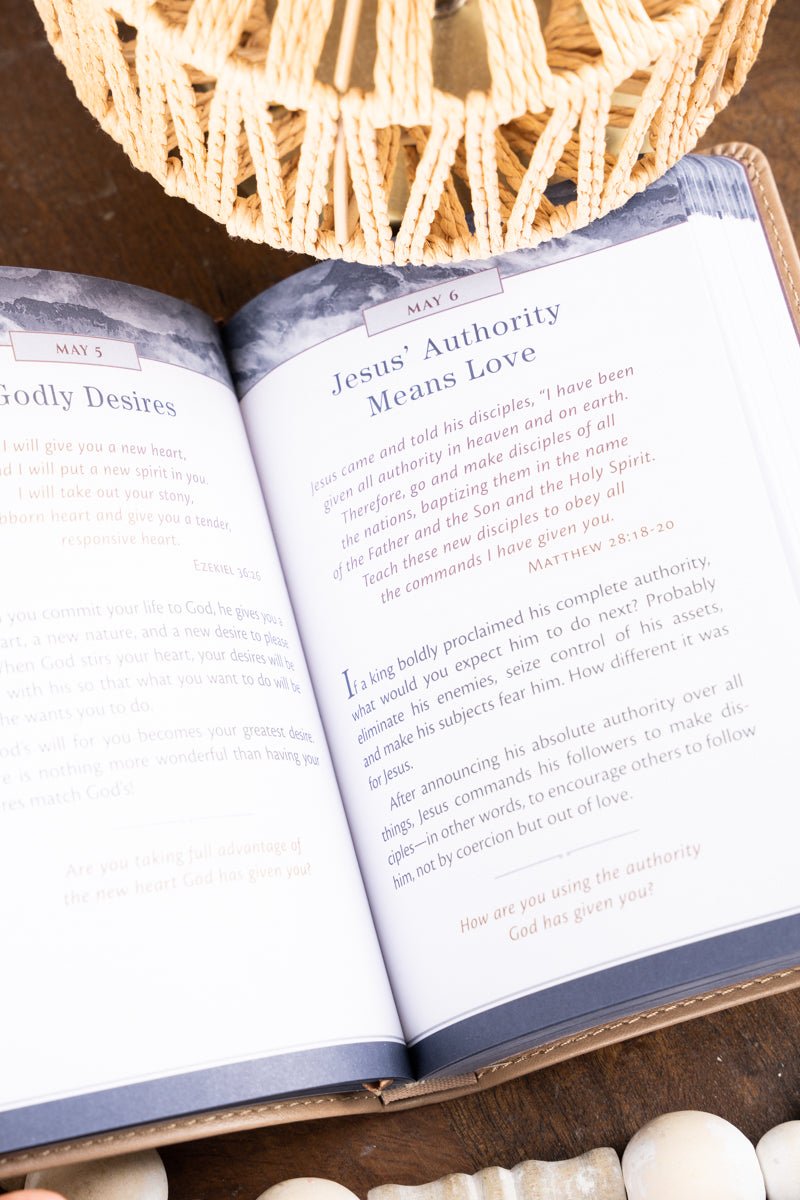 MAY 5
Godly Desires
I will give you a new heart,
I will put a new spirit in you.
I will take out your stony,
heart and give you a tender,
responsive heart.
EZEKIEL 36:26
you commit your life to God, he gives you a
a new nature, and a new desire to please
When God stirs your heart, your desires will be
with his so that what you want to do will be
he wants you to do.
God's will for you becomes your greatest desire.
is nothing more wonderful than having your
match God's!
Are you taking full advantage of
the new heart God has given you?
MAY 6
Jesus' Authority
Means Love
Jesus came and told his disciples, "I have been
given all authority in heaven and on earth.
Therefore, go and make disciples of all
the nations, baptizing them in the name
of the Father and the Son and the Holy Spirit.
Teach these new disciples to obey all
the commands I have given you.
MATTHEW 28:18-20
If a king boldly proclaimed his complete authority,
what would you expect him to do next? Probably
eliminate his enemies, seize control of his assets,
and make his subjects fear him. How different it was
for Jesus.
After announcing his absolute authority over all
things, Jesus commands his followers to make dis-
ciples—in other words, to encourage others to follow
him, not by coercion but out of love.
How are you using the authority
God has given you?